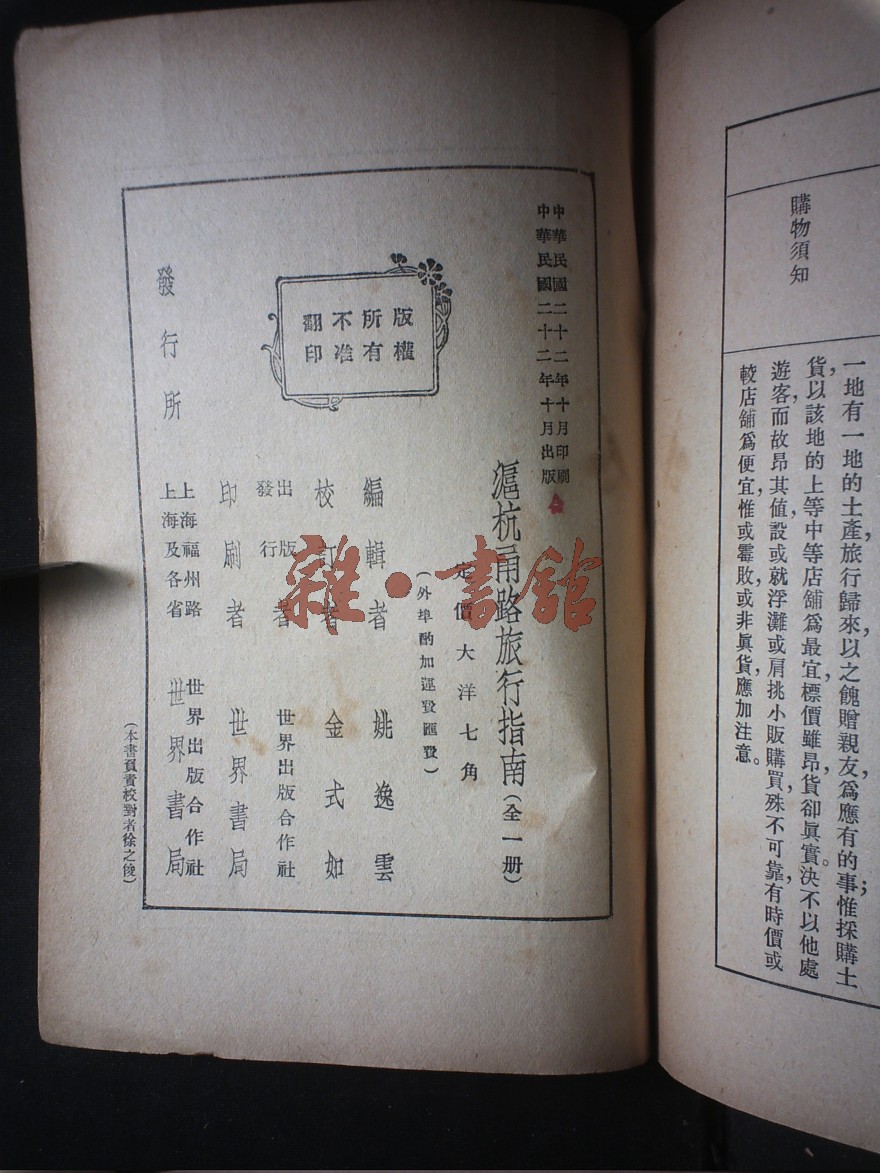 購物須知
一地有一地的土產，旅行歸來以之餽贈親友，爲應有的事；惟採購土
貨，以該地的上等中等店舖爲最宜，標價雖昂，貨卻眞實。決不以他處
遊客，而故昂其値，設或就浮灘或肩挑小販購買，殊不可靠，有時價或
較店舖爲便宜，惟或霉敗，或非眞貨，應加注意。
中華民國二十二年十月印刷
中華民國二十二年十月出版
滬杭甬路旅行指南（全一册）
定價大洋七角
（外埠酌加運費匯費）
版權
所有
不准
翻印
編輯者 姚逸雲
校訂者 金式如
出版者
發行 世界出版合作社
印刷者 世界書局
發行所
上海福州路 世界出版合作社
上海及各省 世界書局
（本書負責校對者徐之俊）
雜·書館